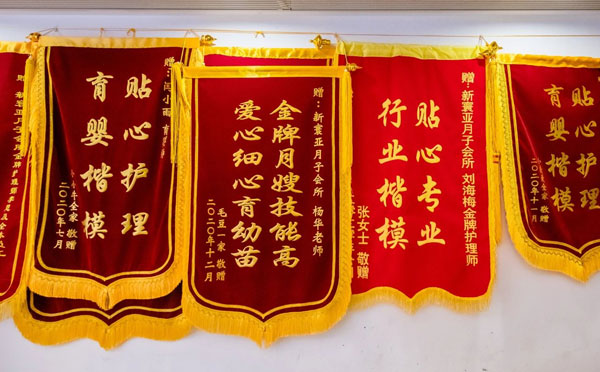 赠：新寰亚月子会所金牌护理
贴心护理
育婴楷模
二〇二〇年七月
赠：新寰亚月子会所 杨华老师
金牌月嫂技能高
爱心细心育幼苗
毛豆一家 敬赠
二〇二〇年十二月
赠：新寰亚月子会所 刘海梅金牌护理师
贴心专业
行业楷模
张女士 敬赠
贴心护理
育婴楷模